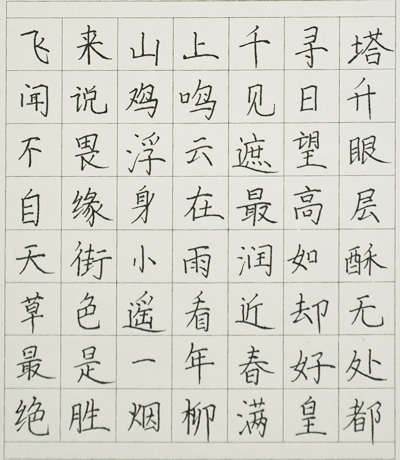 飞来山上千寻塔
闻说鸡鸣见日升
不畏浮云遮望眼
自缘身在最高层
天街小雨润如酥
草色遥看近却无
最是一年春好处
绝胜烟柳满皇都